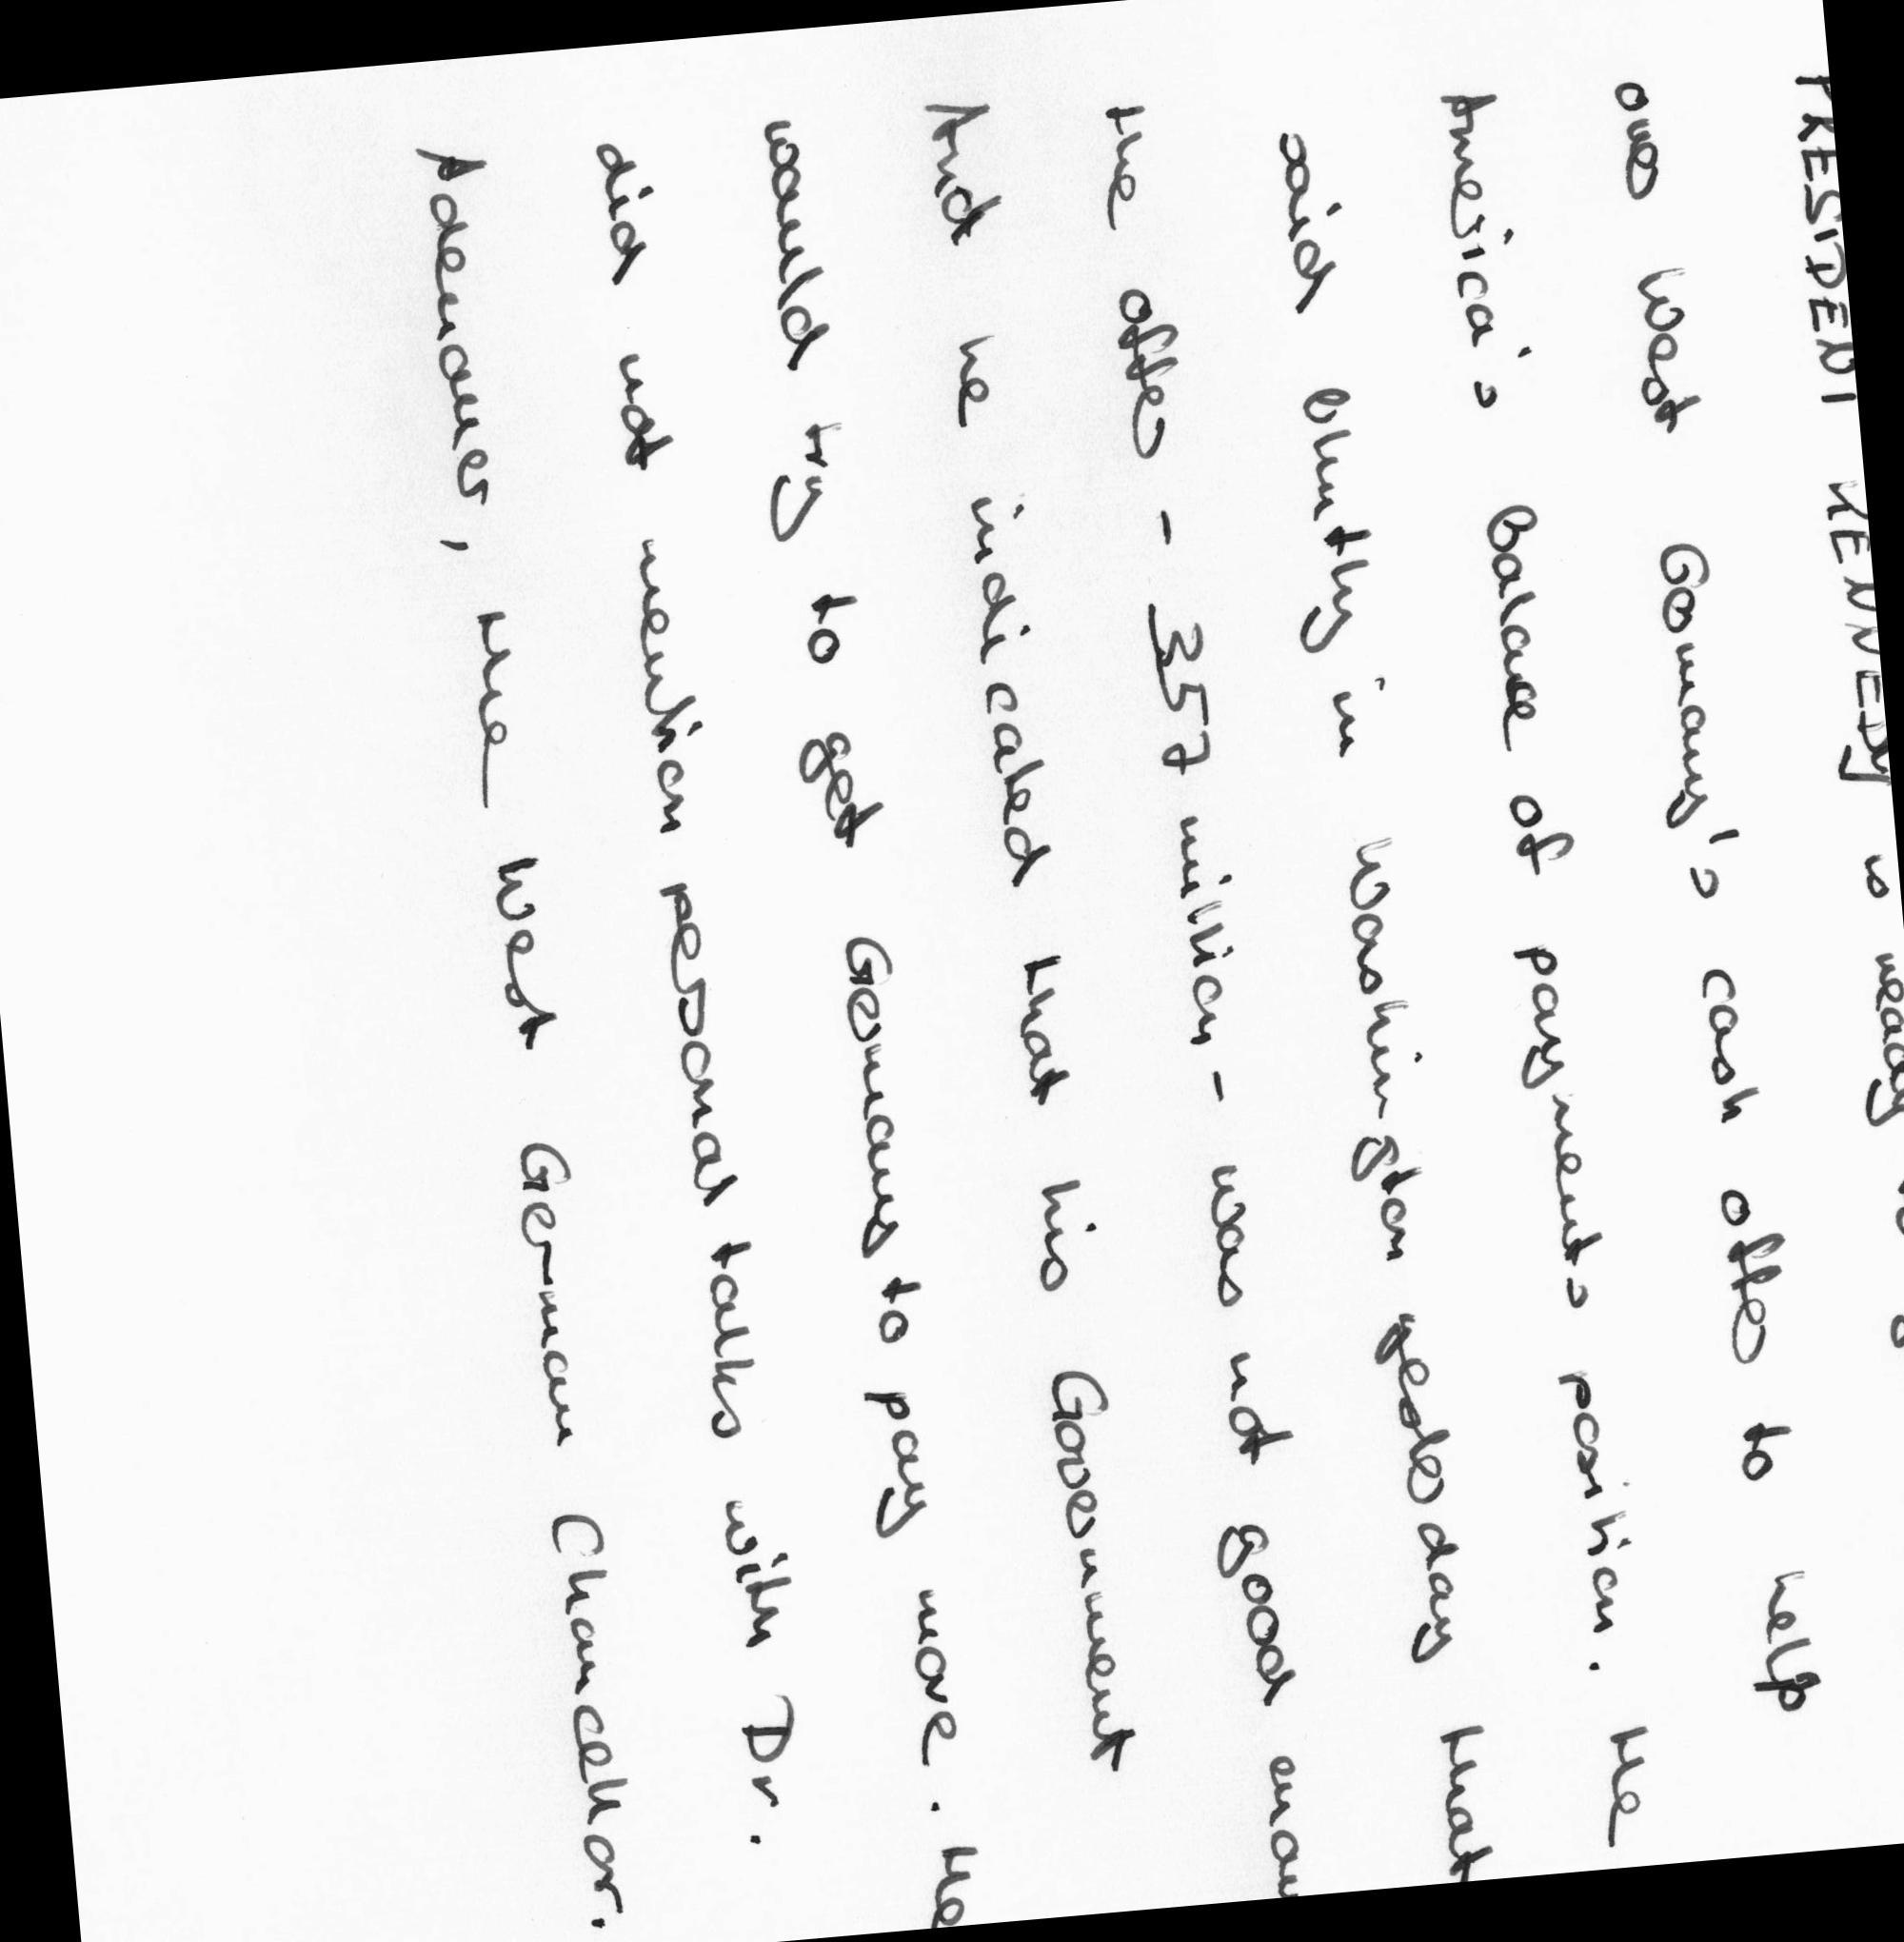 PRESIDENT KENNEDY is ready to
over West Germany's cash offer to help
America's balance of payments position. He
said bluntly in Washington yesterday that
the offer - 357 million - was not good
And he indicated that his Government
would try to get Germany to pay more. He
did not mention personal talks with Dr.
Adenauer, the West German Chancellor.